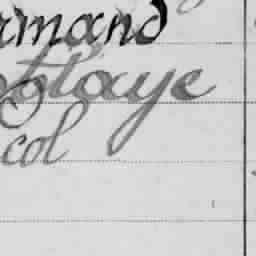 rmand
tolaye
col